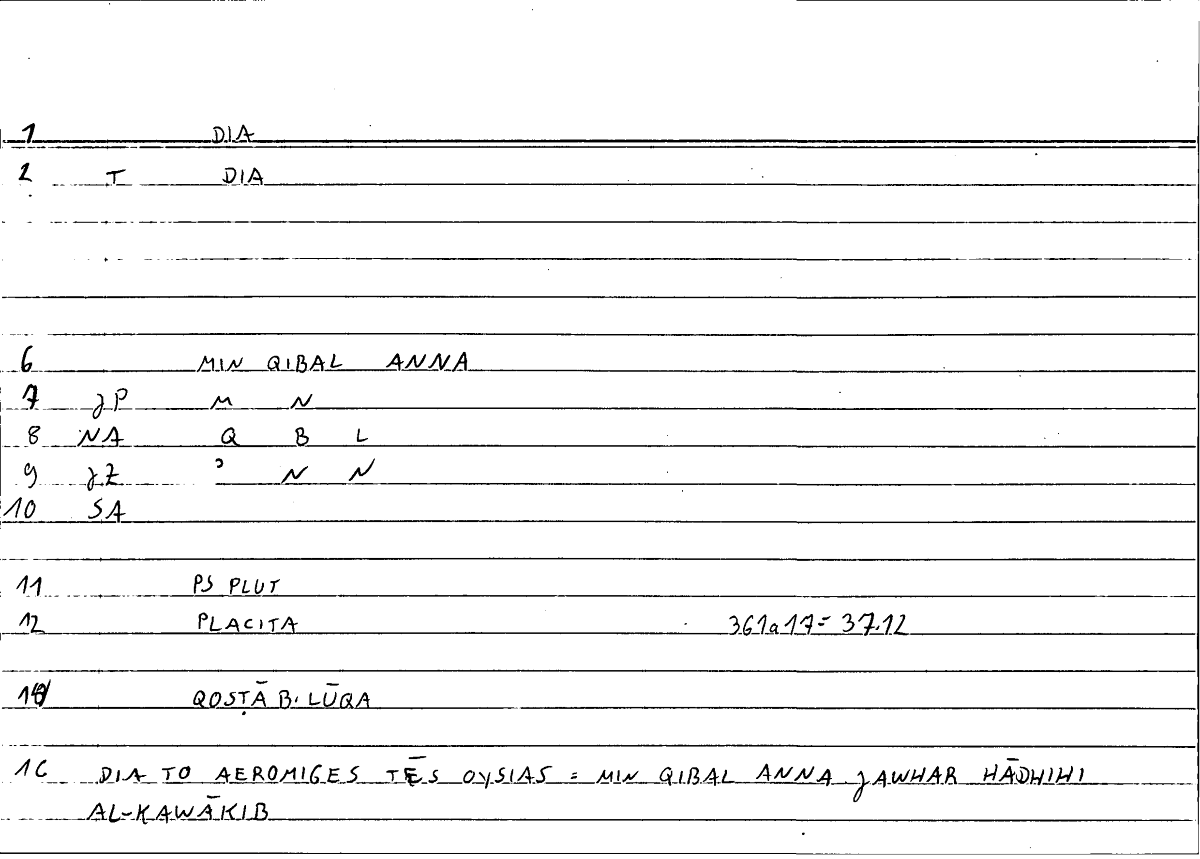 1 DIA
2 T DIA
6 MIN QIBAL ANNA
7 JP M N
8 NA Q B L
9 JZ ʾ N N
10 SA
11 PS PLUT
12 PLACITA 361a17= 37.12
QOSṬĀ B. LŪQA
16 DIA TO AEROMIGES TĒS OYSIAS = MIN QIBAL ANNA JAWHAR HĀDHIHI
AL-KAWĀKIB